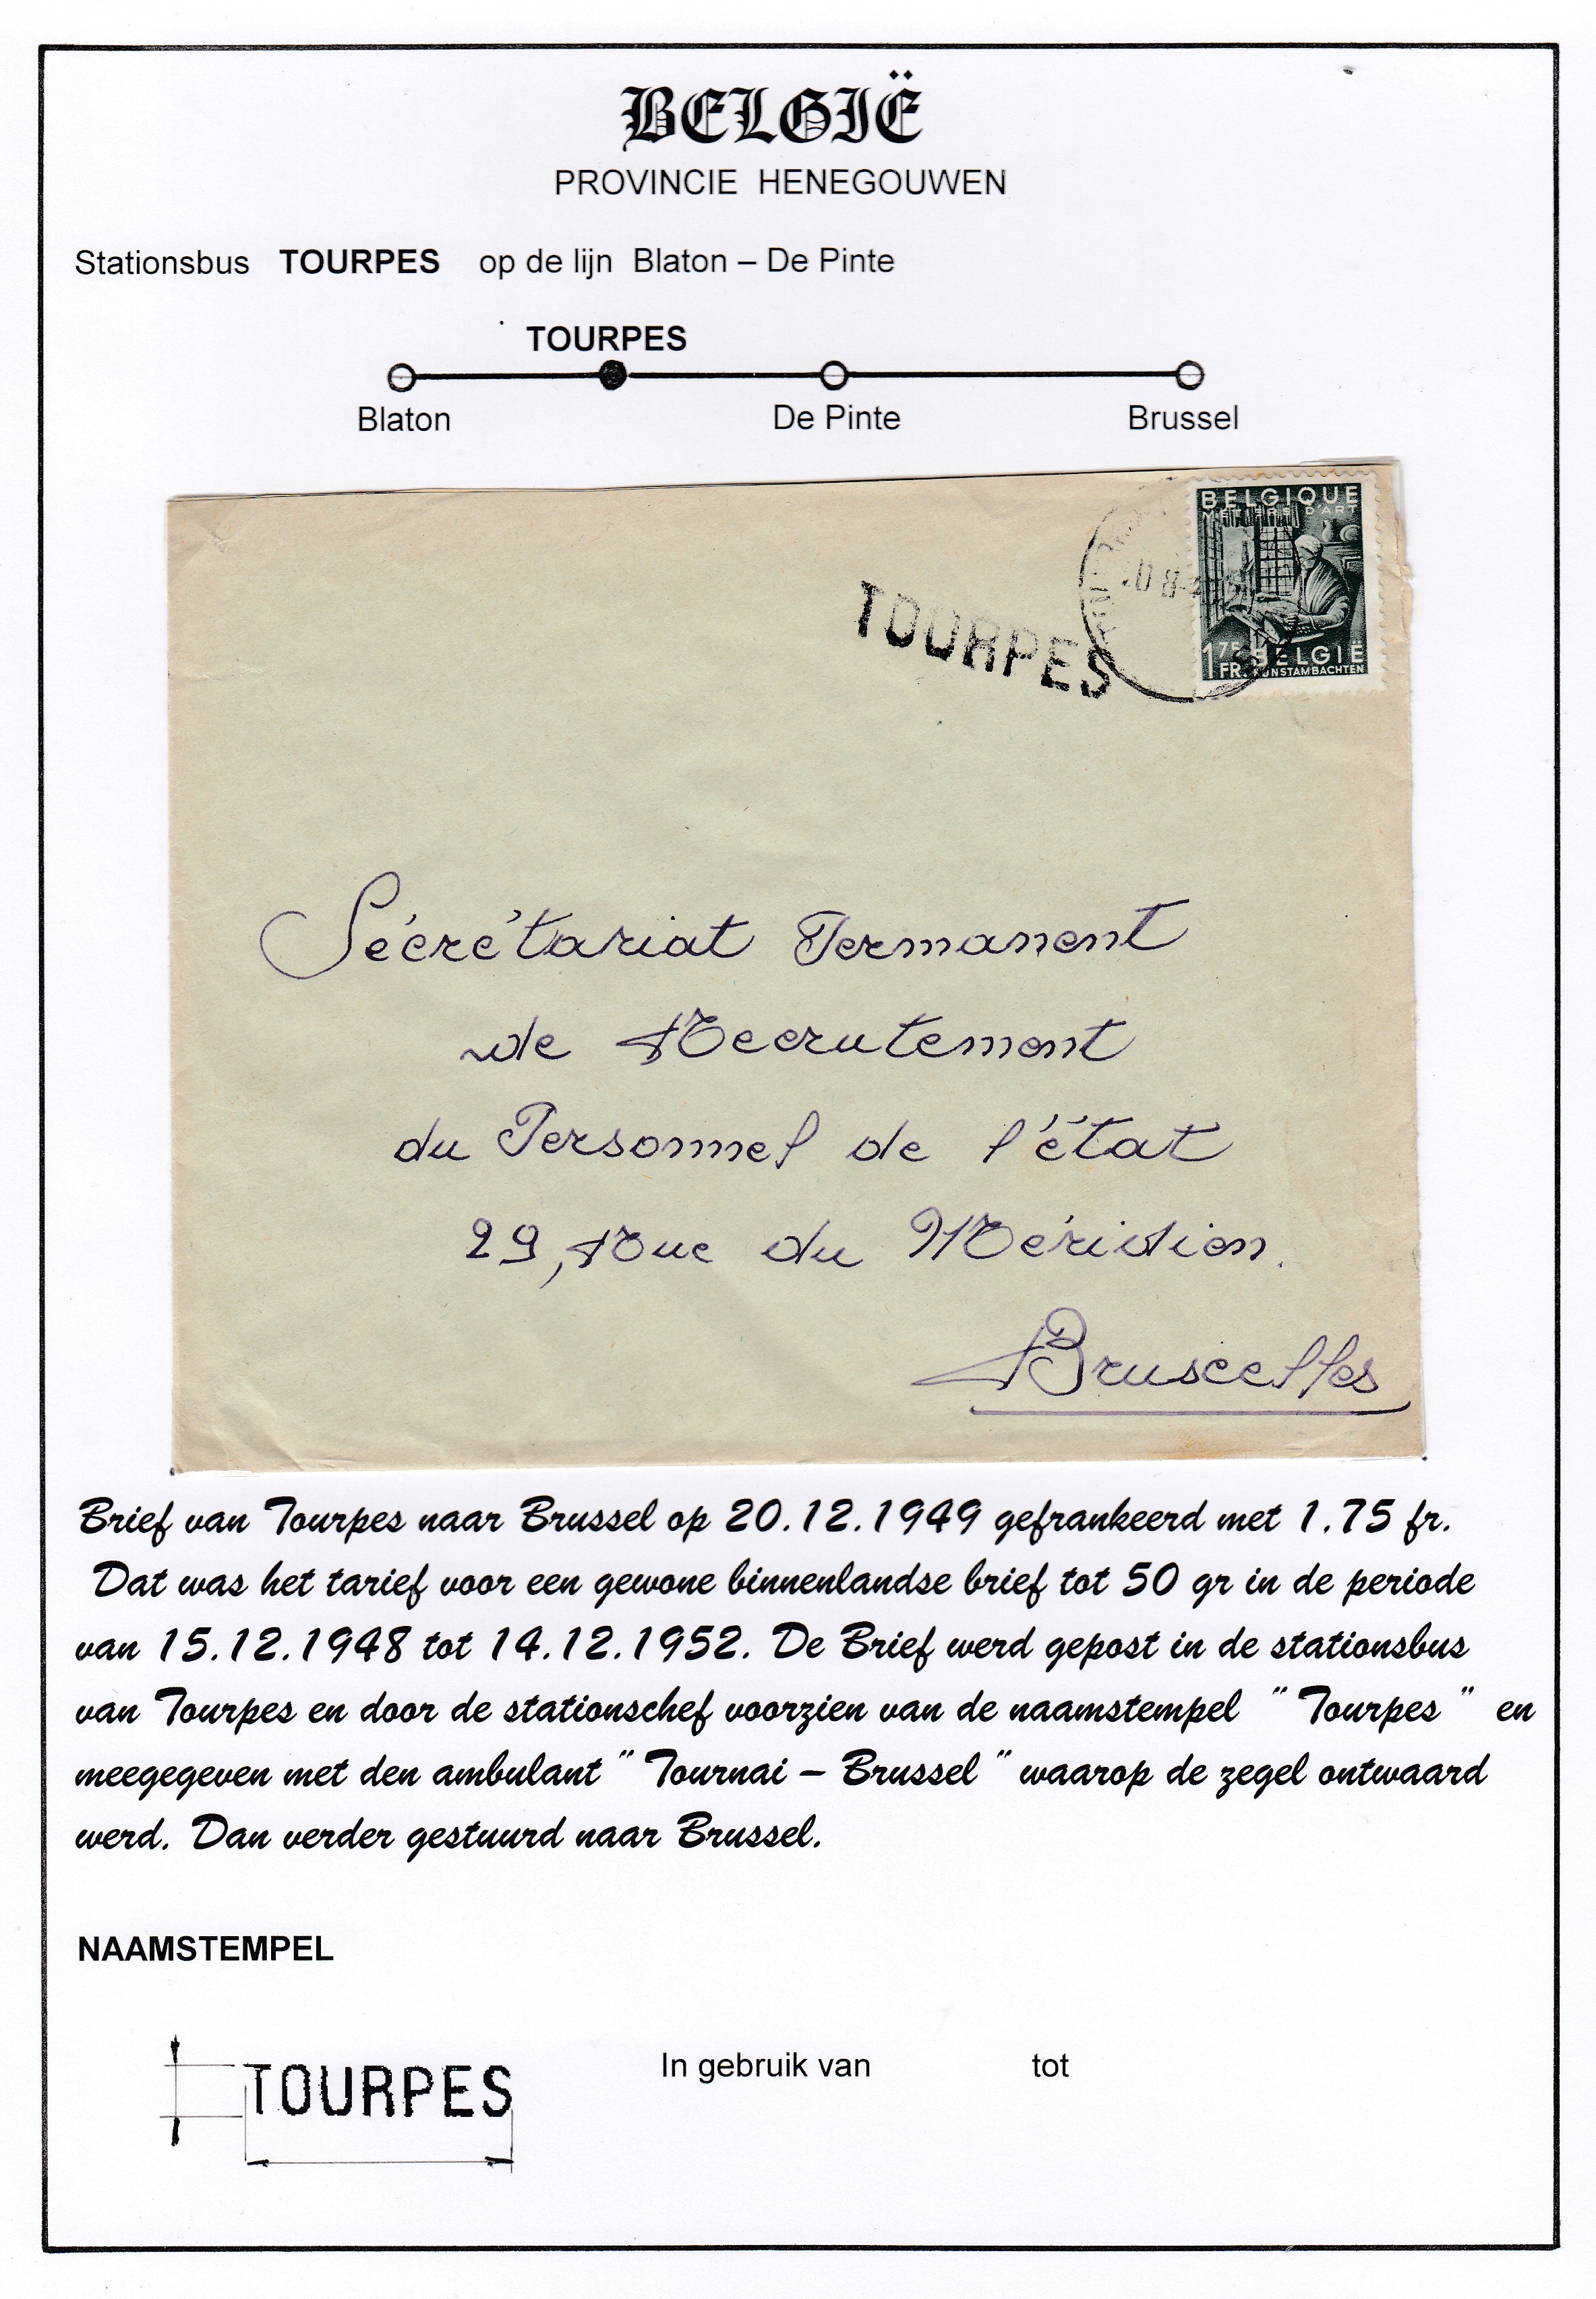 BELGIË
PROVINCIE HENEGOUWEN
Stationsbus TOURPES op de lijn Blaton – De Pinte
TOURPES
Blaton De Pinte Brussel
BELGIQUE
METIERS D'ART
1.75 FR. BELGIË
KUNSTAMBACHTEN
TOURPES
Sécrétariat Permanent
de Recrutement
du Personnel de l'état
29, Rue du Méridien.
Bruxelles
Brief van Tourpes naar Brussel op 20.12.1949 gefrankeerd met 1.75 fr.
Dat was het tarief voor een gewone binnenlandse brief tot 50 gr in de periode
van 15.12.1948 tot 14.12.1952. De Brief werd gepost in de stationsbus
van Tourpes en door de stationschef voorzien van de naamstempel " Tourpes " en
meegegeven met den ambulant " Tournai – Brussel " waarop de zegel ontwaard
werd. Dan verder gestuurd naar Brussel.
NAAMSTEMPEL
TOURPES
In gebruik van tot